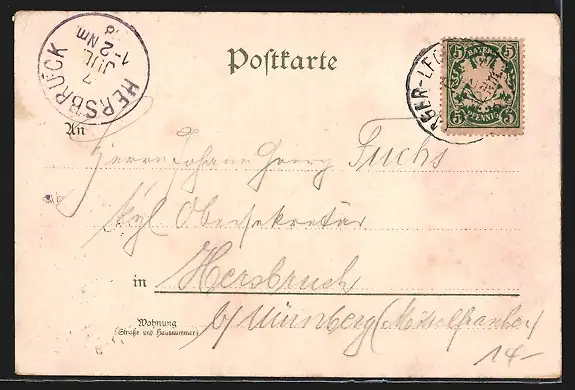 HERSBRUCK
7 JUL
1-2 Nm.
Postkarte
LAGER-LECH
5 BAYERN 5
5 PFENNIG 5
An
Herrn Johann Georg Fuchs
Kgl Obersekretär
in Hersbruck
Wohnung
(Straße und Hausnummer)
b/ Nürnberg (Mittelfranken)
14-